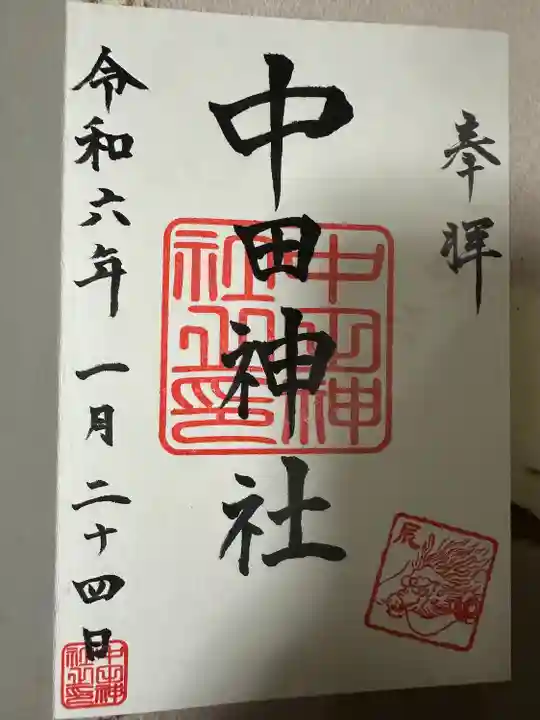 奉拝
中田神社
中田神社之印
辰
令和六年一月二十四日
中田神社之印